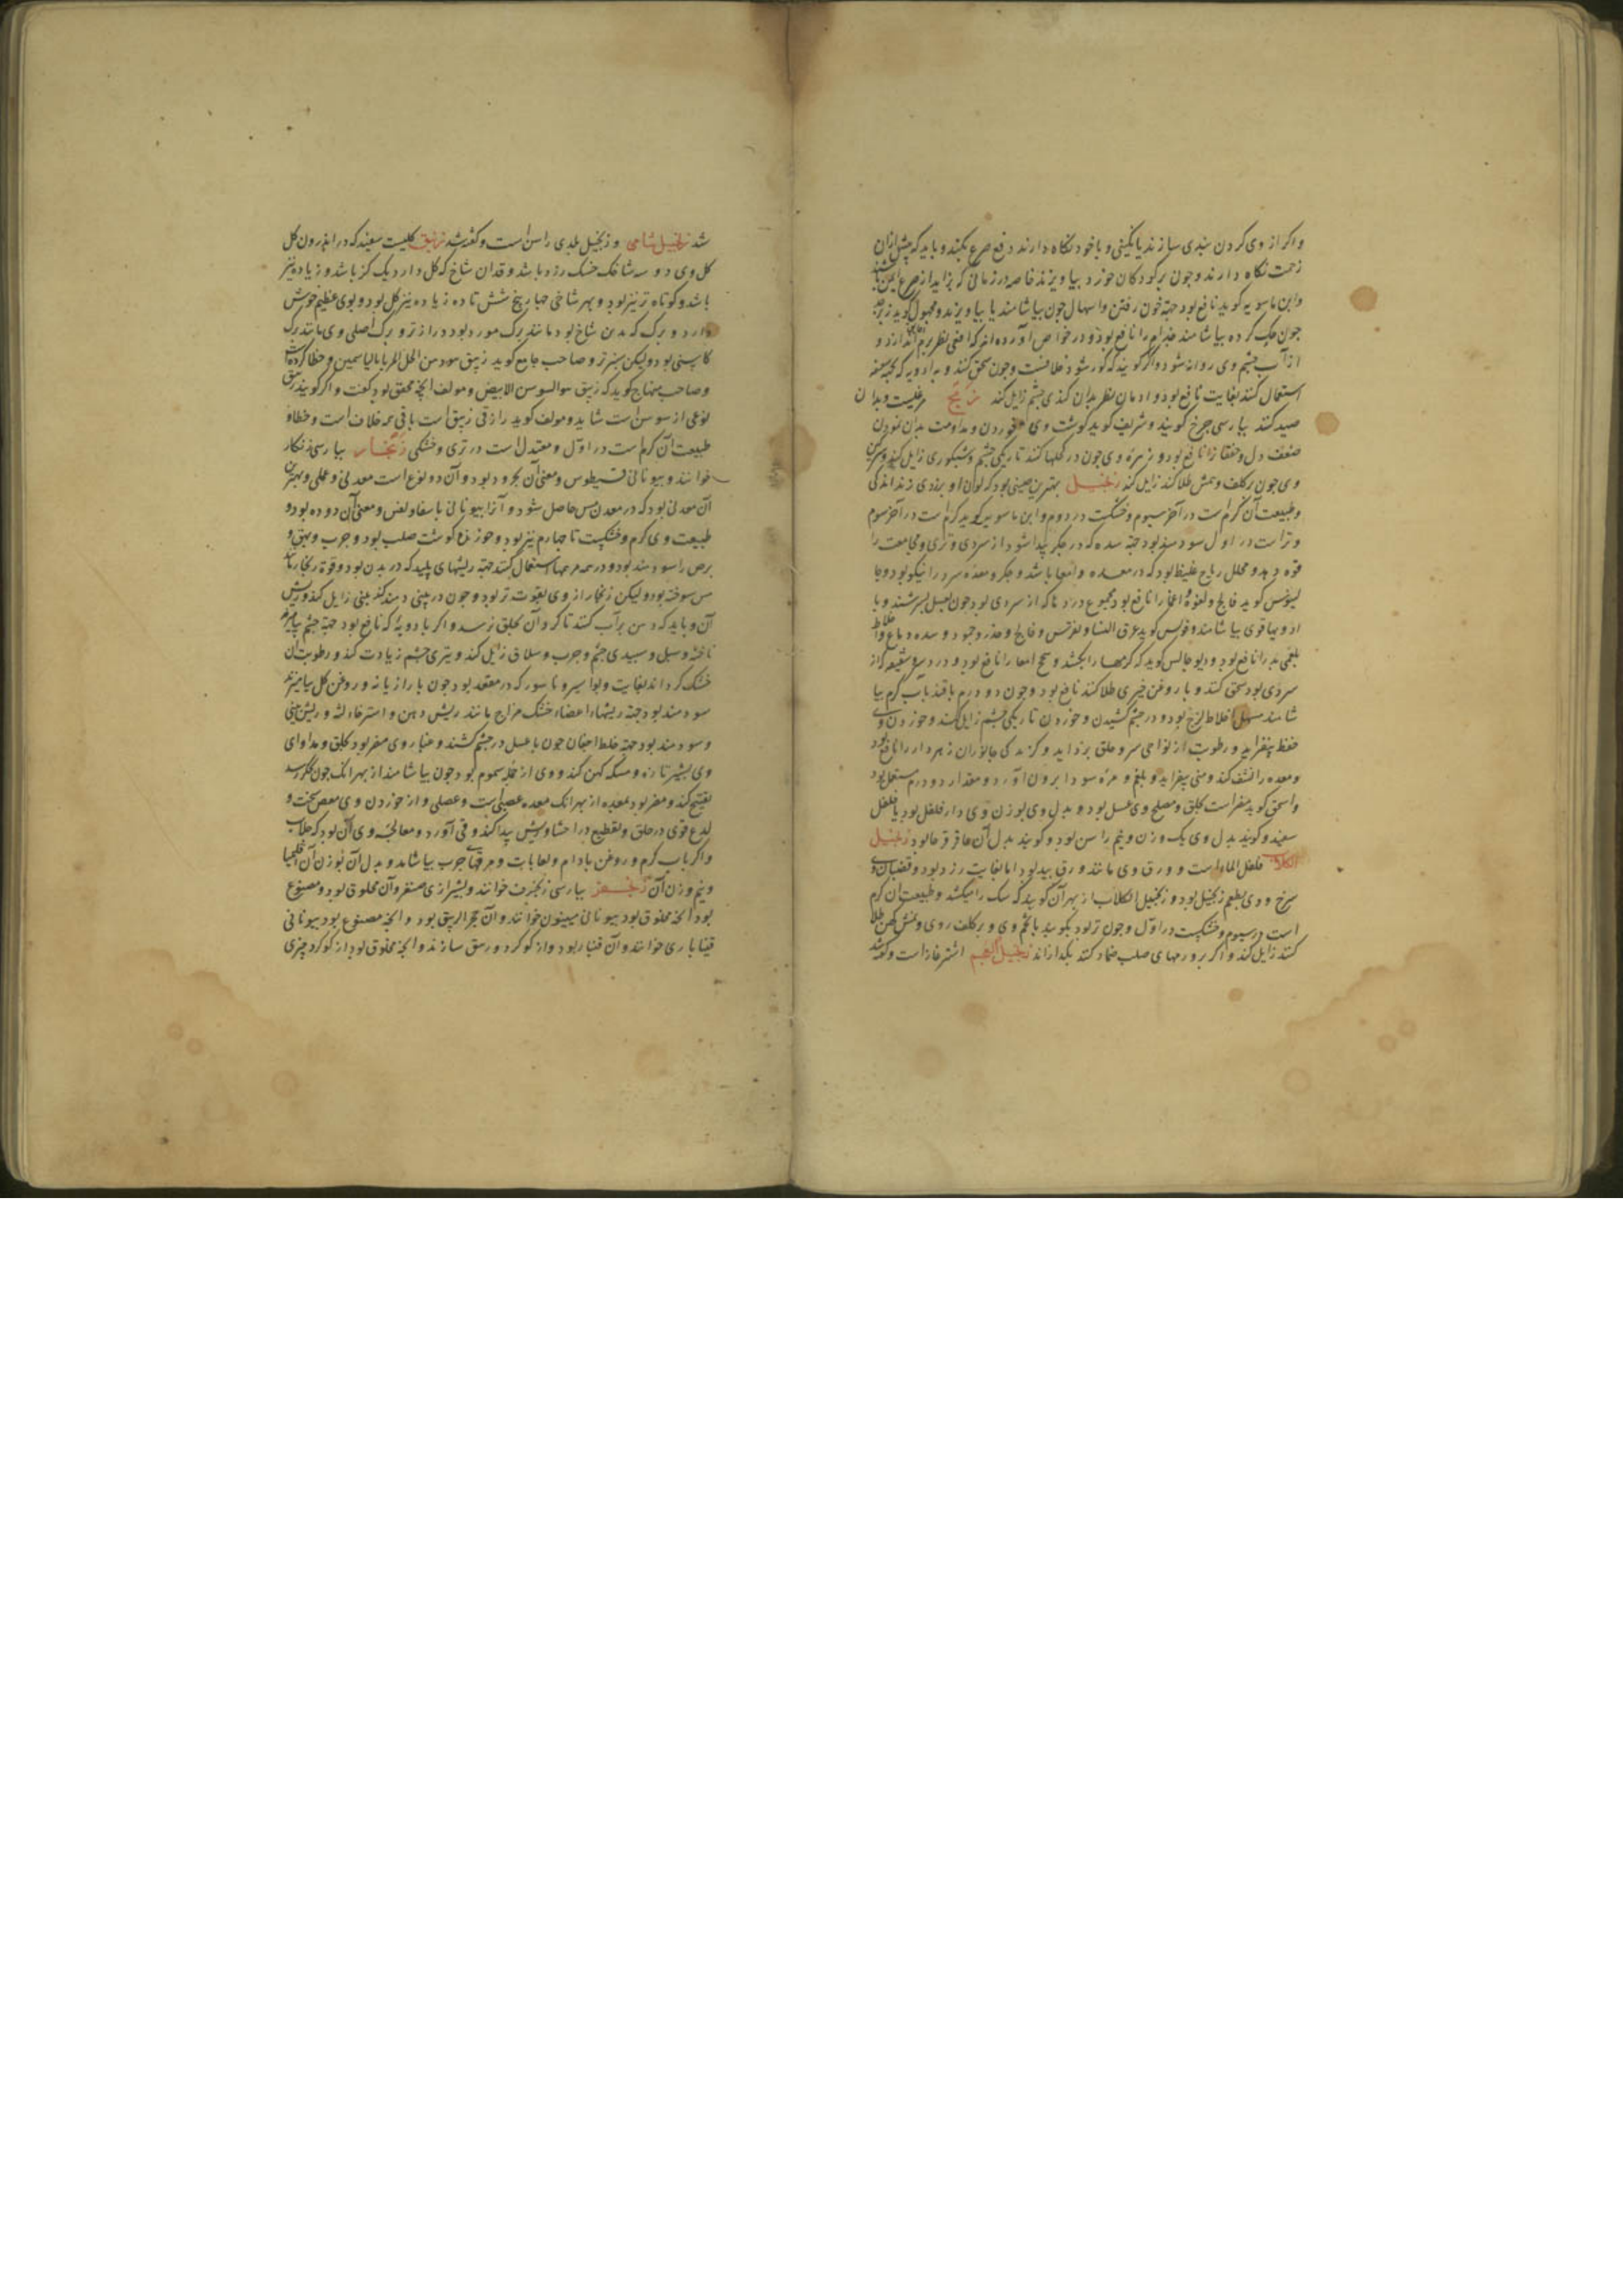 واکر از وی کردن بندی سازند یا نگینی و با خود نگاه دارند دفع صرع بکند و باید که پیش ازان
زحمت نگاه دارند و چون بر کودکان خورد بیاویزند خاصه در زمانی که بزاید از صرع ایمن باشند
وابن ماسویه کوید نافع بود جهة خون رفتن و اسهال چون بیاشامند یا بیاویزند و مجهول کوید زبرجد
چون حک کرده بیاشامند جذام را نافع بود و در خواص آورده اند که افعی نظر برم اندازد و
از آب چشم وی روانه شود و اگر کویند که کور شود خلافست و چون سحق کنند و به ادویه که جهة سعفه
استعمال کنند بغایت نافع بود و ادمان نظر بدان کندی چشم زایل کند زمج مرغیست و بدان
صید کنند بپارسی چرخ کویند و شریف کوید کوشت وی خوردن و مداومت بدان نمودن
ضعف دل و خفقان را نافع بود و زهره وی چون در کحلها کنند تاریکی چشم و شبکوری زایل کند و سرکین
وی چون بر کلف و نمش طلا کنند زایل کند زنجبیل بهترین چینی بود که لون او بزردی زند اندکی
و طبیعت آن کرم است در آخر سیوم و خشکست در دوم و ابن ماسویه کوید کرم است در آخر سوم
و تر است در اول سودمند بود جهة سده که در جکر پیدا شود از سردی و تری و مجامعت را
قوه دهد و محلل ریاح غلیظ بود که در معده و امعا باشد و جکر و معده سرد را نیکو بود و جا
لینوس کوید فالج و لقوه و اعیا را نافع بود مجموع دردها که از سردی بود چون بعسل بسرشند و با
ادویها قوی بیاشامند و فولس کوید عرق النسا و نقرس و فالج و خدر و جمود و سده دماغ و اخلاط
بلغمی بد را نافع بود و دیوجالس کوید که کرمها را بکشد و سحج امعا را نافع بود و درد سر و شقیقه که از
سردی بود سحق کنند و با روغن خیری طلا کنند نافع بود و چون دو درم با قند باب کرم بیا
شامند مسهل اخلاط لزج بود و در چشم کشیدن و خوردن تاریکی چشم زایل کند و خوردن وی
حفظ بیفزاید و رطوبت از نواحی سر و حلق بزداید و کزندکی جانوران زهردار را نافع بود
و معده را نشف کند و منی بیفزاید و بلغم و مره سودا برون آورد و مقدار دو درم مستعمل بود
و اسحق کوید مضر است بحلق و مصلح وی عسل بود و بدل وی بوزن وی دارفلفل بود یا فلفل
سفید و کویند بدل وی یک وزن و نیم راسن بود و کویند بدل آن عاقرقرحا بود زنجبیل
الکلاب فلفل الماء است و ورق وی مانند ورق بید بود اما بغایت زرد بود و قضبان وی
سرخ و وی بطعم زنجبیل بود و زنجبیل الکلاب از بهر آن کویند که سک را میکشد و طبیعت آن کرم
است در سیوم و خشکست در اول و چون تر بود بکوبند با تخم وی و بر کلف روی و نمش کهن طلا
کنند زایل کند و اکر بر ورمهای صلب ضماد کنند بکدازاند زنجبیل العجم اشترغاز است و کفته
شد زنجبیل شامی و زنجبیل بلدی راسن است و کفته شد زنبق کلیست سفید که در اندرون کل
کل وی دو سه شاخک خشک زرد باشد و قد آن شاخ که کل دارد یک کز باشد و زیاده نیز
باشد و کوتاه تر نیز بود و بهر شاخی چهار پنج شش تا ده زیاده نیز کل بود و بوی عظیم خوش
دارد و برک که بدن شاخ بود مانند برک مورد بود درازتر و برک اصلی وی مانند برک
کاسنی بود ولیکن سبزتر و صاحب جامع کوید زنبق سودهن الحل المربا بالیاسمین و خطا کرده است
و صاحب منهاج کوید که زنبق سوالسوسن الابیض و مولف انچه محقق بود بکفت و اکر کویند زنبق
نوعی از سوسن است شاید و مولف کوید رازقی زنبق است باقی همه خلاف است و خطا و
طبیعت آن کرم است در اول و معتدل است در تری و خشکی زنجار بپارسی زنکار
خوانند و بیونانی قسیطوس و معنی آن مجرود بود و آن دو نوع است معدنی و عملی و بهترین
آن معدنی بود که در معدن مس حاصل شود و آنرا بیونانی و معنی آن دوده بود و
طبیعت وی کرم و خشکست تا چهارم نیز بود و خورنده کوشت صلب بود و جرب و بهق و
برص را سودمند بود و در همه مرهمها استعمال کنند جهة ریشهای پلید که در بدن بود و قوة زنجار مانند
مس سوخته بود ولیکن زنجار از وی بقوت تر بود و چون در بینی دمند کند بینی زایل کند و ریش
آن و باید که دهن پر آب کنند تا کرد آن بحلق نرسد و اکر با دویهٔ که نافع بود جهة چشم بیامیزند
ناخنه و سبل و سپیدی چشم و جرب و سلاق زایل کند و تیزی چشم زیادت کند و رطوبت آن
خشک کرداند بغایت و بواسیر و ناسور که در مقعد بود چون با رازیانه و روغن کل بیامیزند
سودمند بود جهة ریشهاء اعضاء خشک مزاج مانند ریش دهن و استرخاء لثه و ریش بینی
و سودمند بود جهة غلظ اجفان چون با عسل در چشم کشند و غبار وی مضر بود بحلق و مداوای
وی بشیر تازه و مسکه کهن کنند و وی از جمله سموم بود چون بیاشامند از بهر انک چون بجکر رسد
تفتیح کند و مضر بود بمعده از بهر انک معده عصبی است و عضلی و از خوردن وی مغص سخت و
لدع قوی در حلق و تقطیع در احشا و ریش پیدا کند و قی آورد و معالجه وی آن بود که جلاب
و اکر باب کرم و روغن بادام و لعابات و مرقهای چرب بیاشامد و بدل آن بوزن آن اقلیمیا
و نیم وزن آن زنجفر بپارسی زنجرف خوانند و بشیرازی صنفر و آن مخلوق بود و مصنوع
بود انچه مخلوق بود بیونانی مینیون خوانند و آن حجر الزیبق بود و انچه مصنوع بود بیونانی
قیناباری خوانند و آن قنبار بود و از کوکرد و زیبق سازند و انچه مخلوق بود از کوکرد چیزی